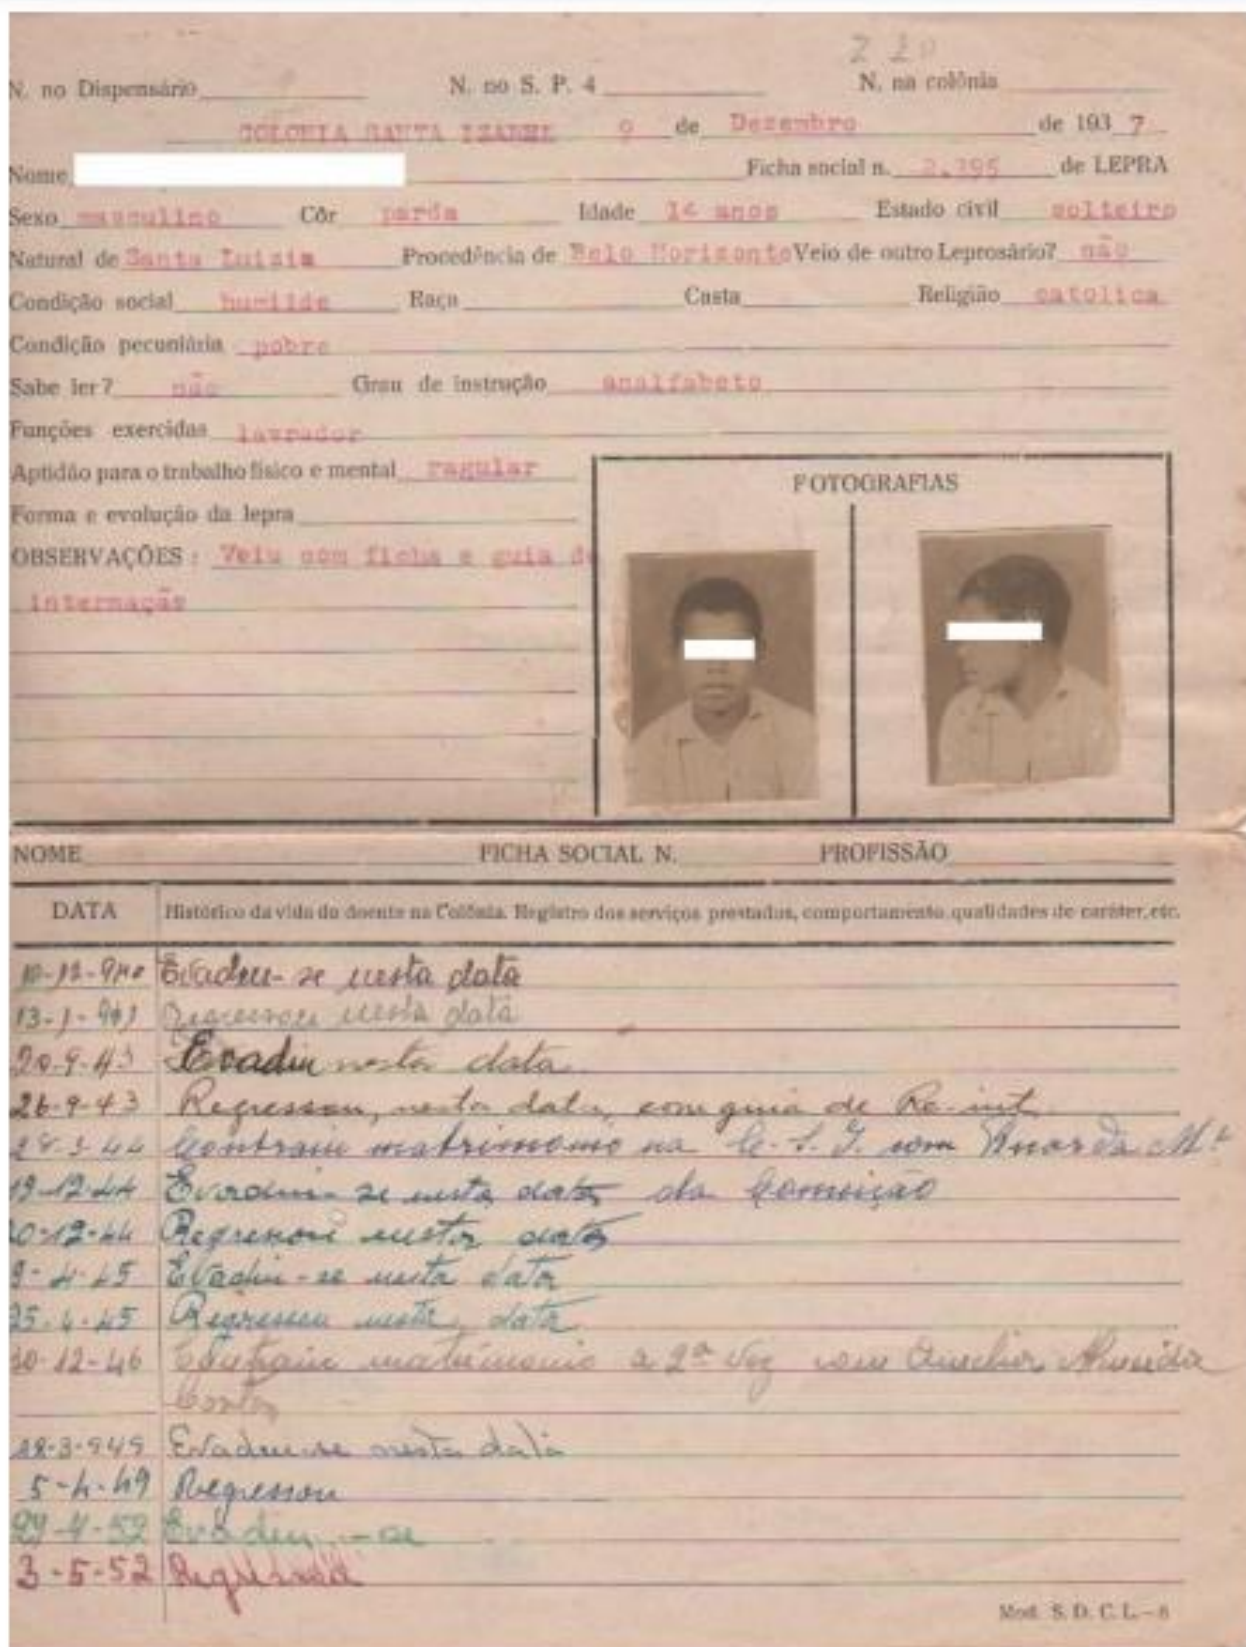 N. no Dispensário N. no S. P. 4 N. na colônia
COLONIA SANTA IZABEL 9 de Dezembro de 1937
Nome Ficha social n. 2.395 de LEPRA
Sexo masculino Côr parda Idade 16 anos Estado civil solteiro
Natural de Santa Luizia Procedência de Belo Horizonte Veio de outro Leprosário? não
Condição social humilde Raça Casta Religião catolica
Condição pecuniária pobre
Sabe ler? não Grau de instrução analfabeto
Funções exercidas lavrador
Aptidão para o trabalho físico e mental ragular
Forma e evolução da lepra
OBSERVAÇÕES: Veiu com ficha e guia de
internação
FOTOGRAFIAS
NOME FICHA SOCIAL N. PROFISSÃO
DATA Histórico da vida do doente na Colônia. Registro dos serviços prestados, comportamento, qualidades de caráter, etc.
10-12-940 Evadiu-se nesta data
13-1-941 Regressou nesta data
20-9-43 Evadiu nesta data
26-9-43 Regressou, nesta data, com guia de Re-int.
28-3-44 Contraiu matrimonio na C.S.I. com M.ª
19-12-44 Evadiu-se nesta data da
0-12-44 Regressou nesta data
9-4-45 Evadiu-se nesta data
25-4-45 Regressou nesta data
30-12-46 Contraiu matrimonio a 2ª vez com Almeida
28-3-949 Evadiu-se nesta data
5-4-49 Regressou
29-4-52 Evadiu-se
3-5-52 Regressou
Mod. S. D. C. L. – 8